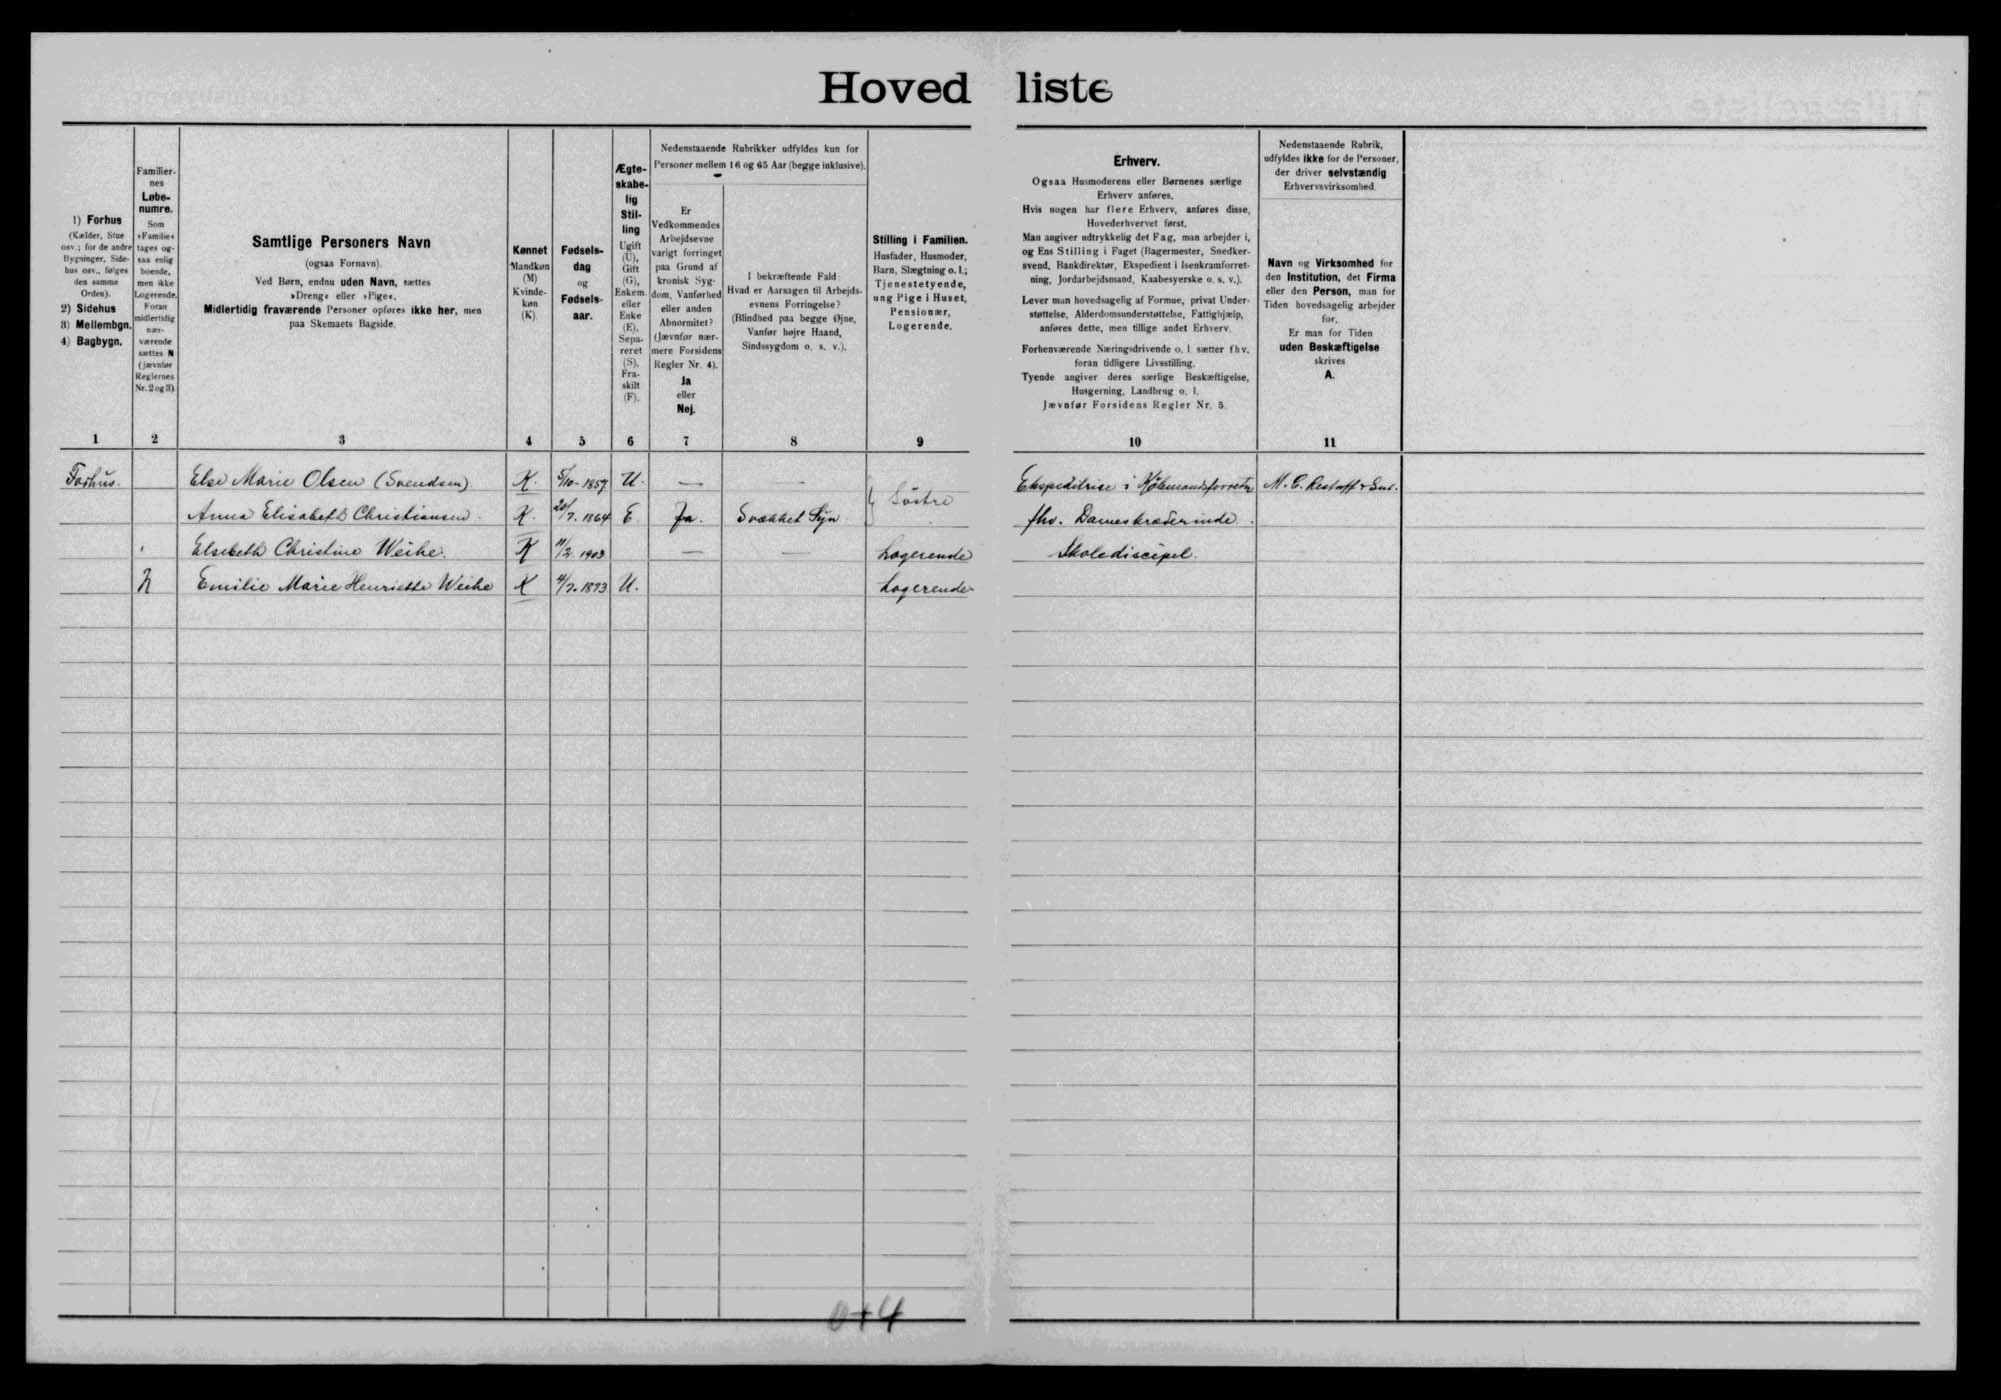 Hovedliste
1) Forhus
(Kælder, Stue
osv.; for de andre
Bygninger, Side-
hus osv., følges
den samme
Orden).
2) Sidehus
3) Mellembgn.
4) Bagbygn.
Familier-
nes
Løbe-
numre.
Som
»Familie«
tages og-
saa enlig
boende,
men ikke
Logerende.
Foran
midlertidig
nær-
værende
sættes N
(jævnfør
Reglernes
Nr. 2 og 3).
Samtlige Personers Navn
(ogsaa Fornavn).
Ved Børn, endnu uden Navn, sættes
»Dreng« eller »Pige«.
Midlertidig fraværende Personer opføres ikke her, men
paa Skemaets Bagside.
Kønnet
Mandkøn
(M)
Kvinde-
køn
(K).
Fødsels-
dag
og
Fødsels-
aar.
Ægte-
skabe-
lig
Stil-
ling
Ugift
(U),
Gift
(G),
Enkem.
eller
Enke
(E),
Sepa-
reret
(S),
Fra-
skilt
(F).
Nedenstaaende Rubrikker udfyldes kun for
Personer mellem 16 og 65 Aar (begge inklusive).
Er
Vedkommendes
Arbejdsevne
varigt forringet
paa Grund af
kronisk Syg-
dom, Vanførhed
eller anden
Abnormitet?
(Jævnfør nær-
mere Forsidens
Regler Nr. 4).
Ja
eller
Nej.
I bekræftende Fald:
Hvad er Aarsagen til Arbejds-
evnens Forringelse?
(Blindhed paa begge Øjne,
Vanfør højre Haand,
Sindssygdom o. s. v.).
Stilling i Familien.
Husfader, Husmoder,
Barn, Slægtning o. l.;
Tjenestetyende,
ung Pige i Huset,
Pensionær,
Logerende.
Erhverv.
Ogsaa Husmoderens eller Børnenes særlige
Erhverv anføres.
Hvis nogen har flere Erhverv, anføres disse,
Hovederhvervet først.
Man angiver udtrykkelig det Fag, man arbejder i,
og Ens Stilling i Faget (Bagermester, Snedker-
svend, Bankdirektør, Ekspedient i Isenkramforret-
ning, Jordarbejdsmand, Kaabesyerske o. s. v.).
Lever man hovedsagelig af Formue, privat Under-
støttelse, Alderdomsunderstøttelse, Fattighjælp,
anføres dette, men tillige andet Erhverv.
Forhenværende Næringsdrivende o. l. sætter fhv.
foran tidligere Livsstilling.
Tyende angiver deres særlige Beskæftigelse,
Husgerning, Landbrug o. l.
Jævnfør Forsidens Regler Nr. 5.
Nedenstaaende Rubrik,
udfyldes ikke for de Personer,
der driver selvstændig
Erhvervsvirksomhed.
Navn og Virksomhed for
den Institution, det Firma
eller den Person, man for
Tiden hovedsagelig arbejder
for.
Er man for Tiden
uden Beskæftigelse
skrives
A.
1 2 3 4 5 6 7 8 9 10 11
Forhus. Else Marie Olsen (Svendsen) K. 5/10-1857 U. — — Søstre Ekspeditrise i Kjøbmandsforretn M. C. Restorff & Sns.
Anna Elisabeth Christiansen K. 20/7. 1864 E Ja. Svækket Syn fhv. Dameskræderinde.
Elsebeth Christine Weihe. K 11/2 1903 — — Logerende Skolediscipel.
N Emilie Marie Henriette Weihe K 4/7. 1873 U. Logerende
0+4